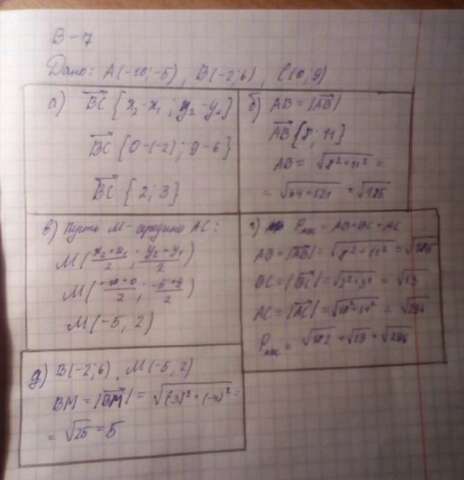 В-17
Дано: А(-10;-5), В(-2;6), С(0;9)
а) BC {x₂-x₁; y₂-y₁}
BC {0-(-2); 9-6}
BC {2; 3}
б) AB = |AB|
AB {8; 11}
AB = √(8²+11²) =
= √(64+121) = √185
в) Пусть М - середина АС:
M((x₂+x₁)/2; (y₂+y₁)/2)
M((-10+0)/2; (-5+9)/2)
M(-5, 2)
г) P = AB+BC+AC
AB = |AB| = √(8²+11²) = √185
BC = |BC| = √(2²+3²) = √13
AC = |AC| = √(10²+14²) = √296
P = + √13 +
д) В(-2;6), М(-5, 2)
BM = |BM| = √((-3)²+(-4)²) =
= √25 = 5